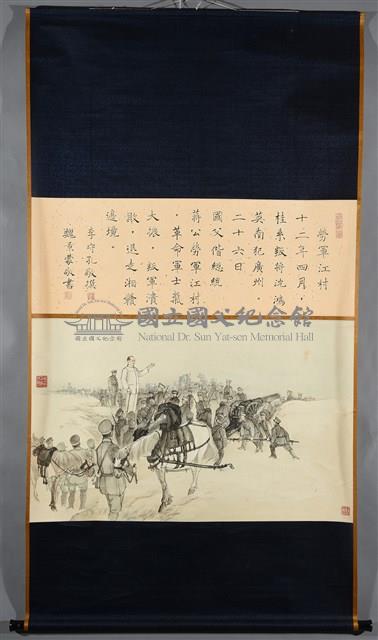 勞軍江村
十二年四月，
桂系叛將沈鴻
英南犯廣州，
二十六日
國父偕總統
蔣公勞軍江村
，革命軍士氣
大振，叛軍潰
敗，退走湘贛
邊境。
李守孔敬撰
魏景蒙敬書
國立國父紀念館
National Dr. Sun Yat-sen Memorial Hall